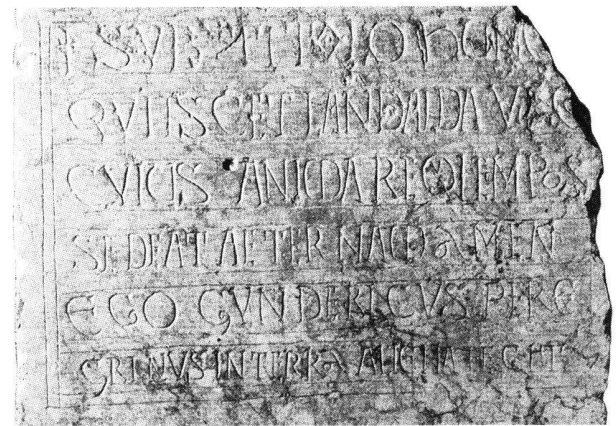 SVB TITOLO HUNC
QVIISCET LANDALDA
CVIUS ANIMA REQIEM POS
SEDEAT AETERNAM AMEN
EGO GUNDERICVS PERG
GRINVS IN TERRA ALIENA FECIT